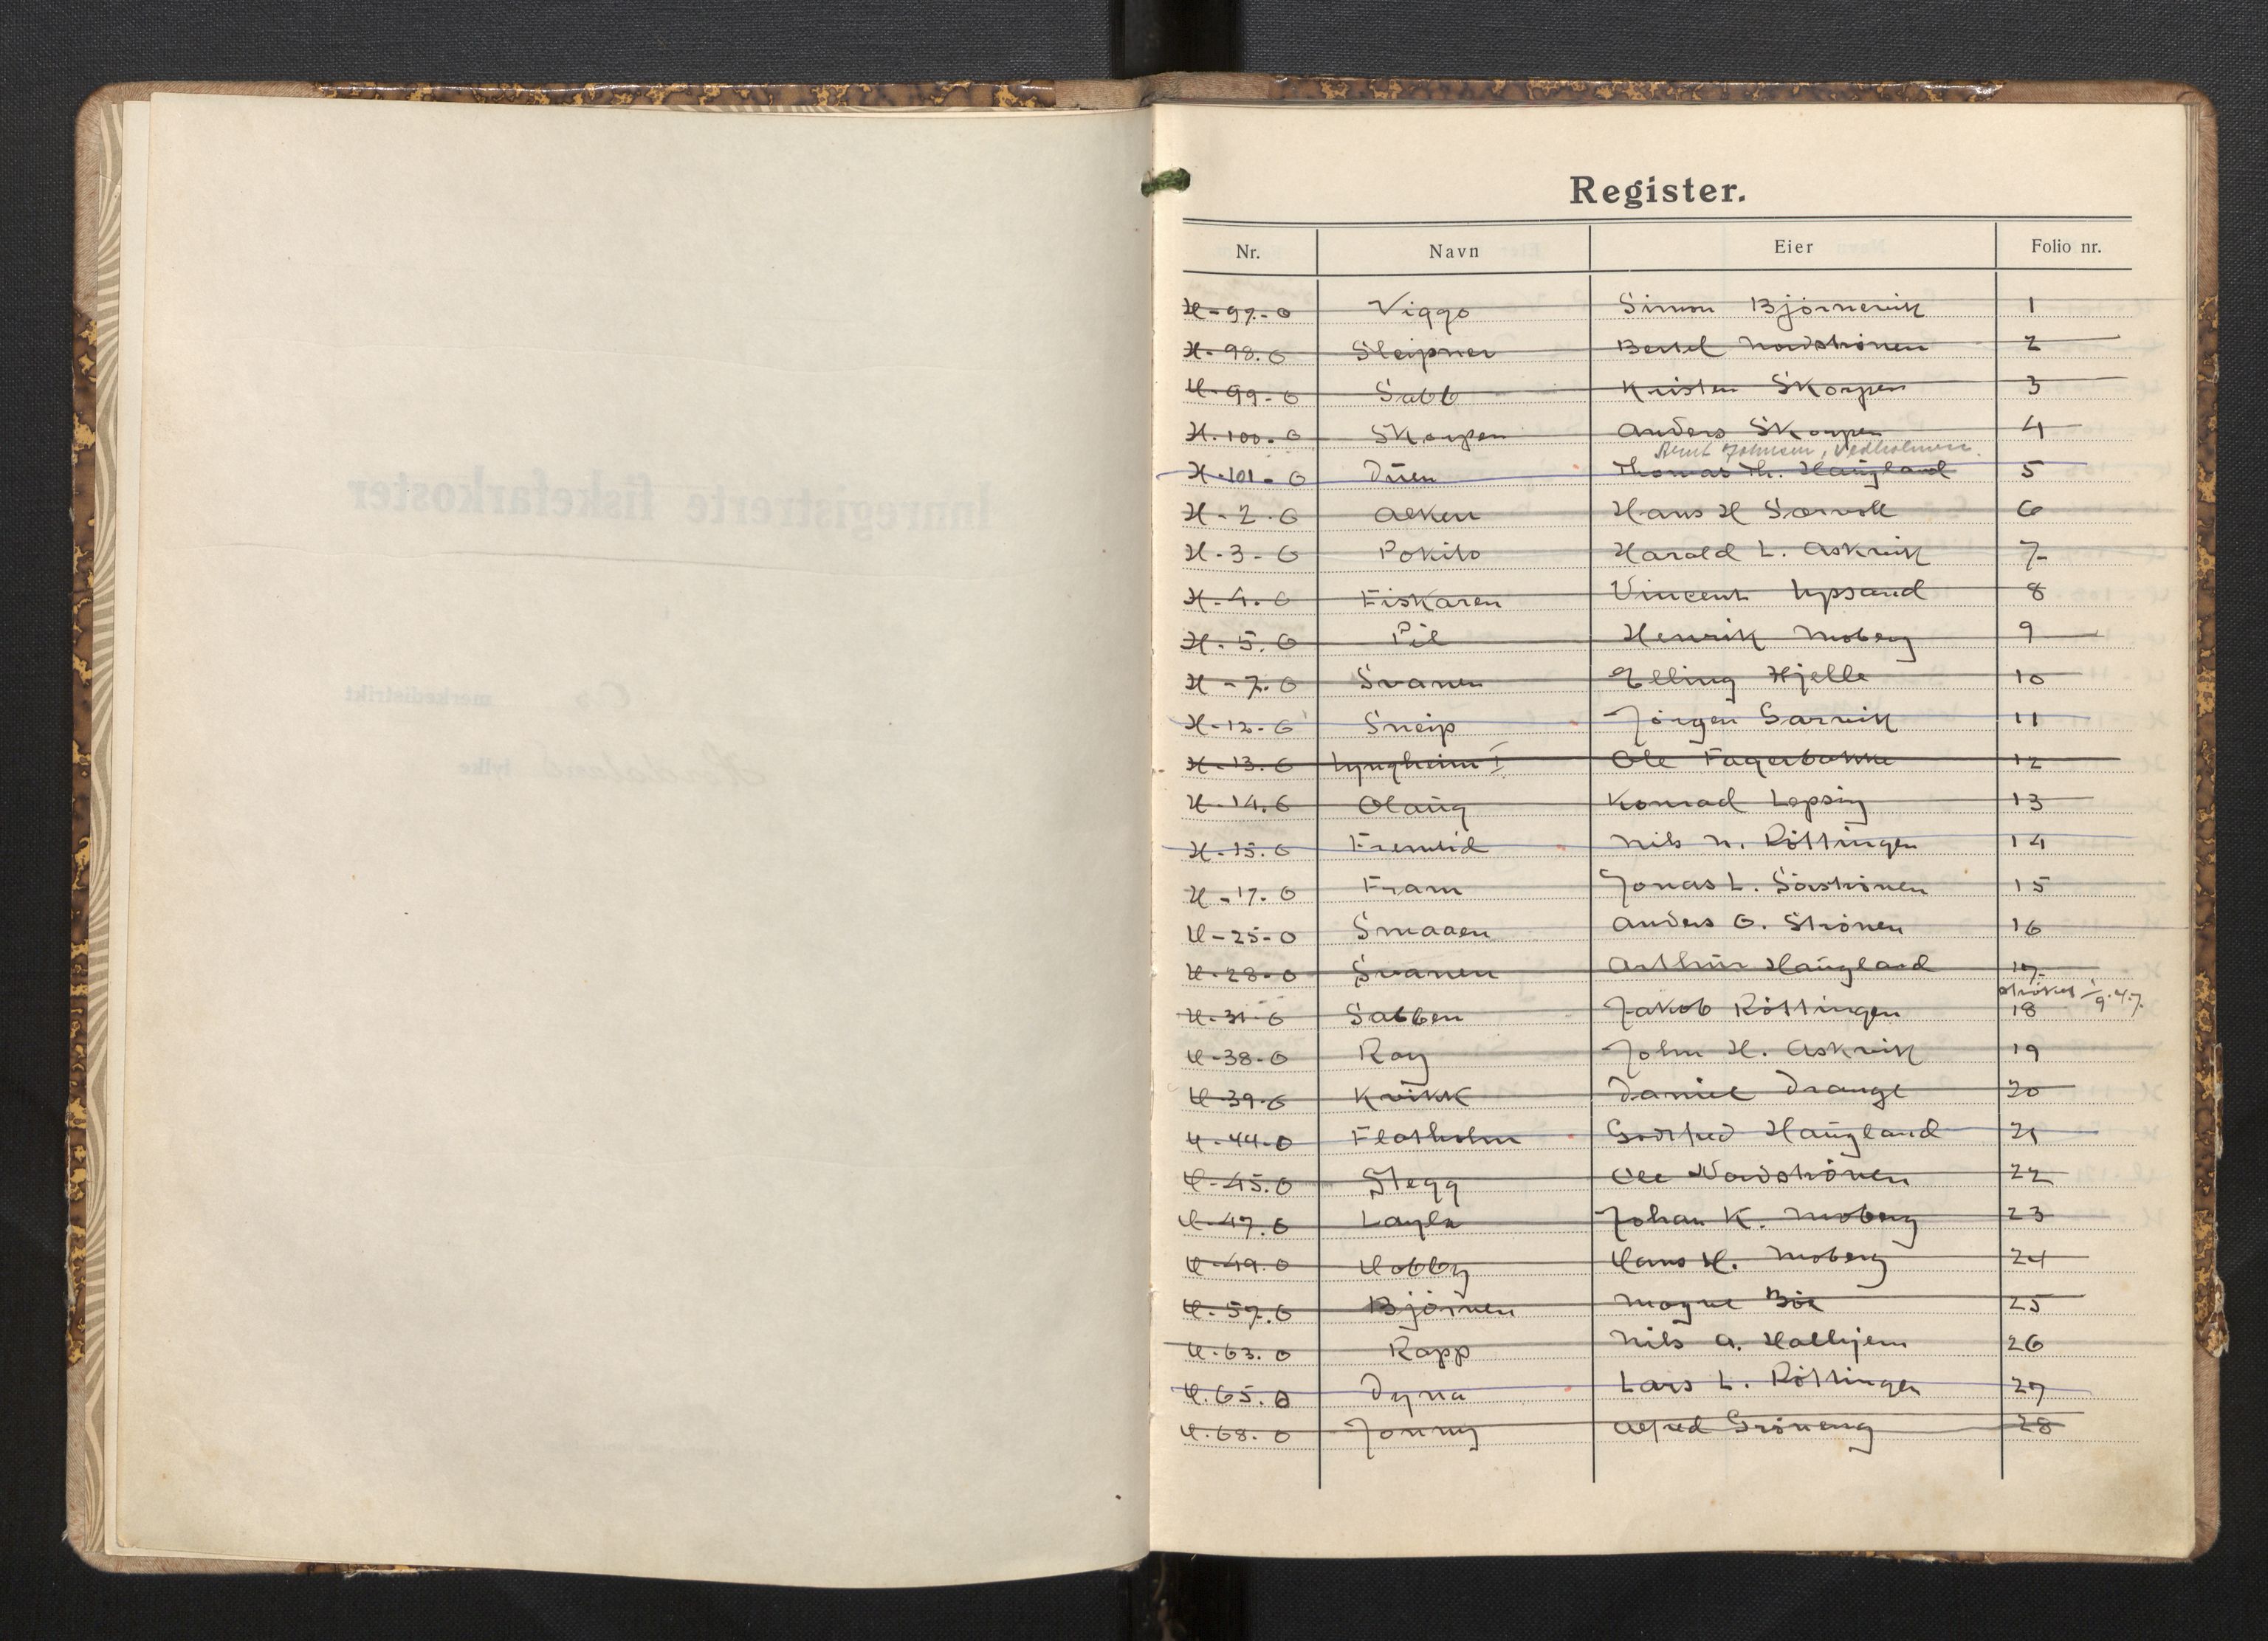 Register.
Nr. Navn Eier Folio nr.
H-97-O Viggo Simon Bjørnevik 1
H-98-O Sleipner Bertel Nordstrønen 2
H-99-O Sabb Kristen Skorpen 3
H-100-O Skorpen Anders Skorpen 4
Johnsen, Vedholmen
H-101-O Duen Thomas Th. Haugland 5
H-2-O Alken Hans H Sørvoll 6
H-3-O Pokito Harald L. Askvik 7
H-4-O Fiskaren Vincent Lyssand 8
H-5-O Pil Henrik Moberg 9
H-7-O Svanen Elling Hjelle 10
H-12-O Sneip Jørgen Sarvik 11
H-13-O Lyngheim I Ole Fagerbakke 12
H-14-O Olaug Konrad Lepsøy 13
H-15-O Fremtid Nils N. Røttingen 14
H-17-O Fram Jonas L. Sørstrønen 15
H-25-O Smaaen Anders O. Strønen 16
H-28-O Svanen Arthur Haugland 17
strøket 1/9.47.
H-31-O Sabben Jakob Røttingen 18
H-38-O Ray John H. Askvik 19
H-39-O Kvikk Daniel Drange 20
H-44-O Flatholm Godtfred Haugland 21
H-45-O Stegg Ole Nordstrønen 22
H-47-O Layla Johan K. Moberg 23
H-49-O Hobby Hans H. Moberg 24
H-57-O Bjørnen Mogne Bøe 25
H-63-O Rapp Nils A. Halhjem 26
H-65-O Dyna Lars L. Røttingen 27
H-68-O Jonny Alfred Grøneng 28